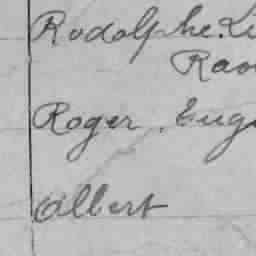 Rodolphe. Li
Raou
Roger. Eug
Albert